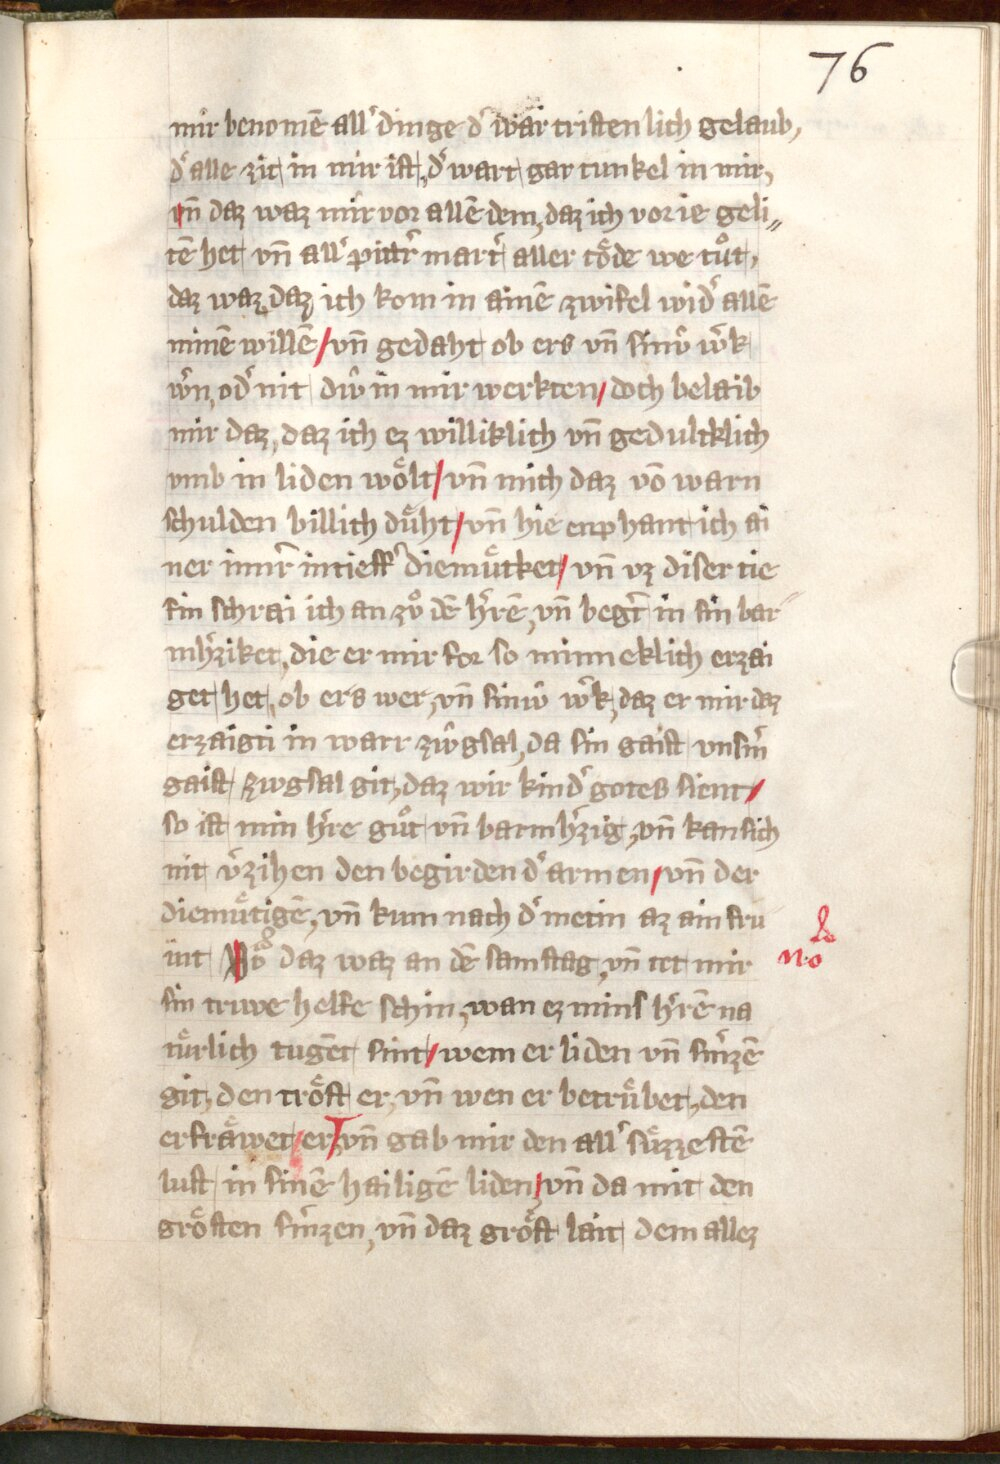 76
mir benomē all᷑ dinge d᷑ war cristenlich gelaub,
d᷑ alle zit in mir ist, d᷑ wart gar tunkel in mir,
vn̄ daz waz mir vor allē dem, daz ich vor ie geli〃
tē het vn̄ all᷑ pittr᷑ mart᷑ aller töde we tůt,
daz waz daz ich kom in ainē zwifel wid᷑ allē
minē willē / vn̄ gedaht ob ers vn̄ sinw̑ w᷑k
w᷑n, od᷑ nit diw̑ in mir werkten / doch belaib
mir daz, daz ich ez williklich vn̄ gedultklich
vmb in liden wölt / vn̄ mich daz vō warn
schulden billich dűht / vn̄ hie enphant ich ai
ner innr᷑ in tieff᷑ diemůtket / vn̄ vz diser tie
fin schrai ich an zů dē h᷑rē, vn̄ begt᷑ in sin bar⸗
mh᷑ziket, die er mir for so minneklich erzai
get het, ob ers wer, vn̄ sinw̑ w᷑k, daz er mir daz
erzaigti in warr zw̑gsal, da sin gaist vnsm᷑
gaist zwgsal git, daz wir kind᷑ gotes sient /
so ist min h᷑re gůt vn̄ barmh᷑zig, vn̄ kan sich
nit v᷑zihen den begirden d᷑ armen / vn̄ der
diemůtigē, vn̄ kum nach d᷑ metin az ain fru
int Nō daz waz an dē samstag, vn̄ tet mir
No
sin truwe helfe schin, wan ez mins h᷑rē na
türlich tugēt sint / wem er liden vn̄ sm᷑zē
git, den tröst er, vn̄ wen er betrűbet, den
erfräwet / er, vn̄ gab mir den all᷑ süzzestē
lust in sinē hailigē liden / vn̄ da mit den
grösten sm᷑zen, vn̄ daz gröst lait dem allez